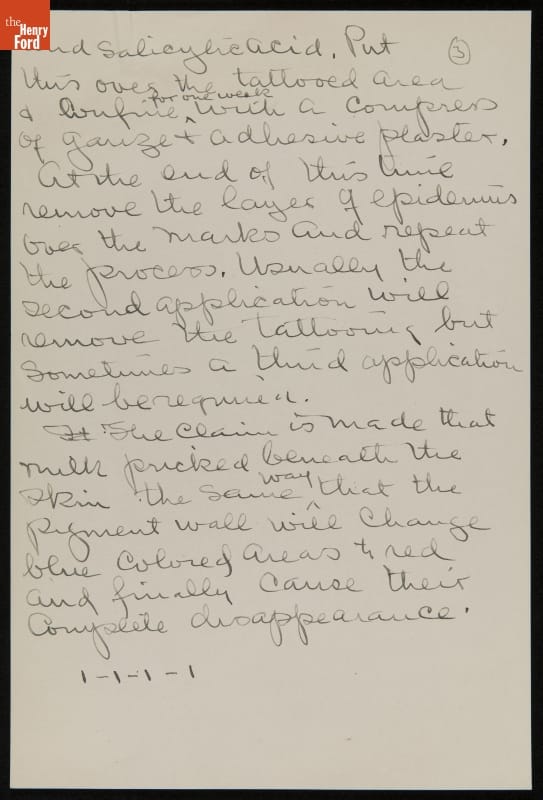 the
Henry
Ford
and Salicylic Acid. Put
③
this over the tattooed area
for one week
& Confine ^ with a compress
of gauze & adhesive plaster.
At the end of this time
remove the layer of epidermis
over the marks and repeat
the process. Usually the
second application will
remove the tattooing but
Sometimes a third application
will be required.
It The Claim is made that
milk pricked beneath the
way
skin the same ^ that the
pigment wall will Change
blue Colored areas to red
and finally cause their
Complete disappearance.
1-1-1-1